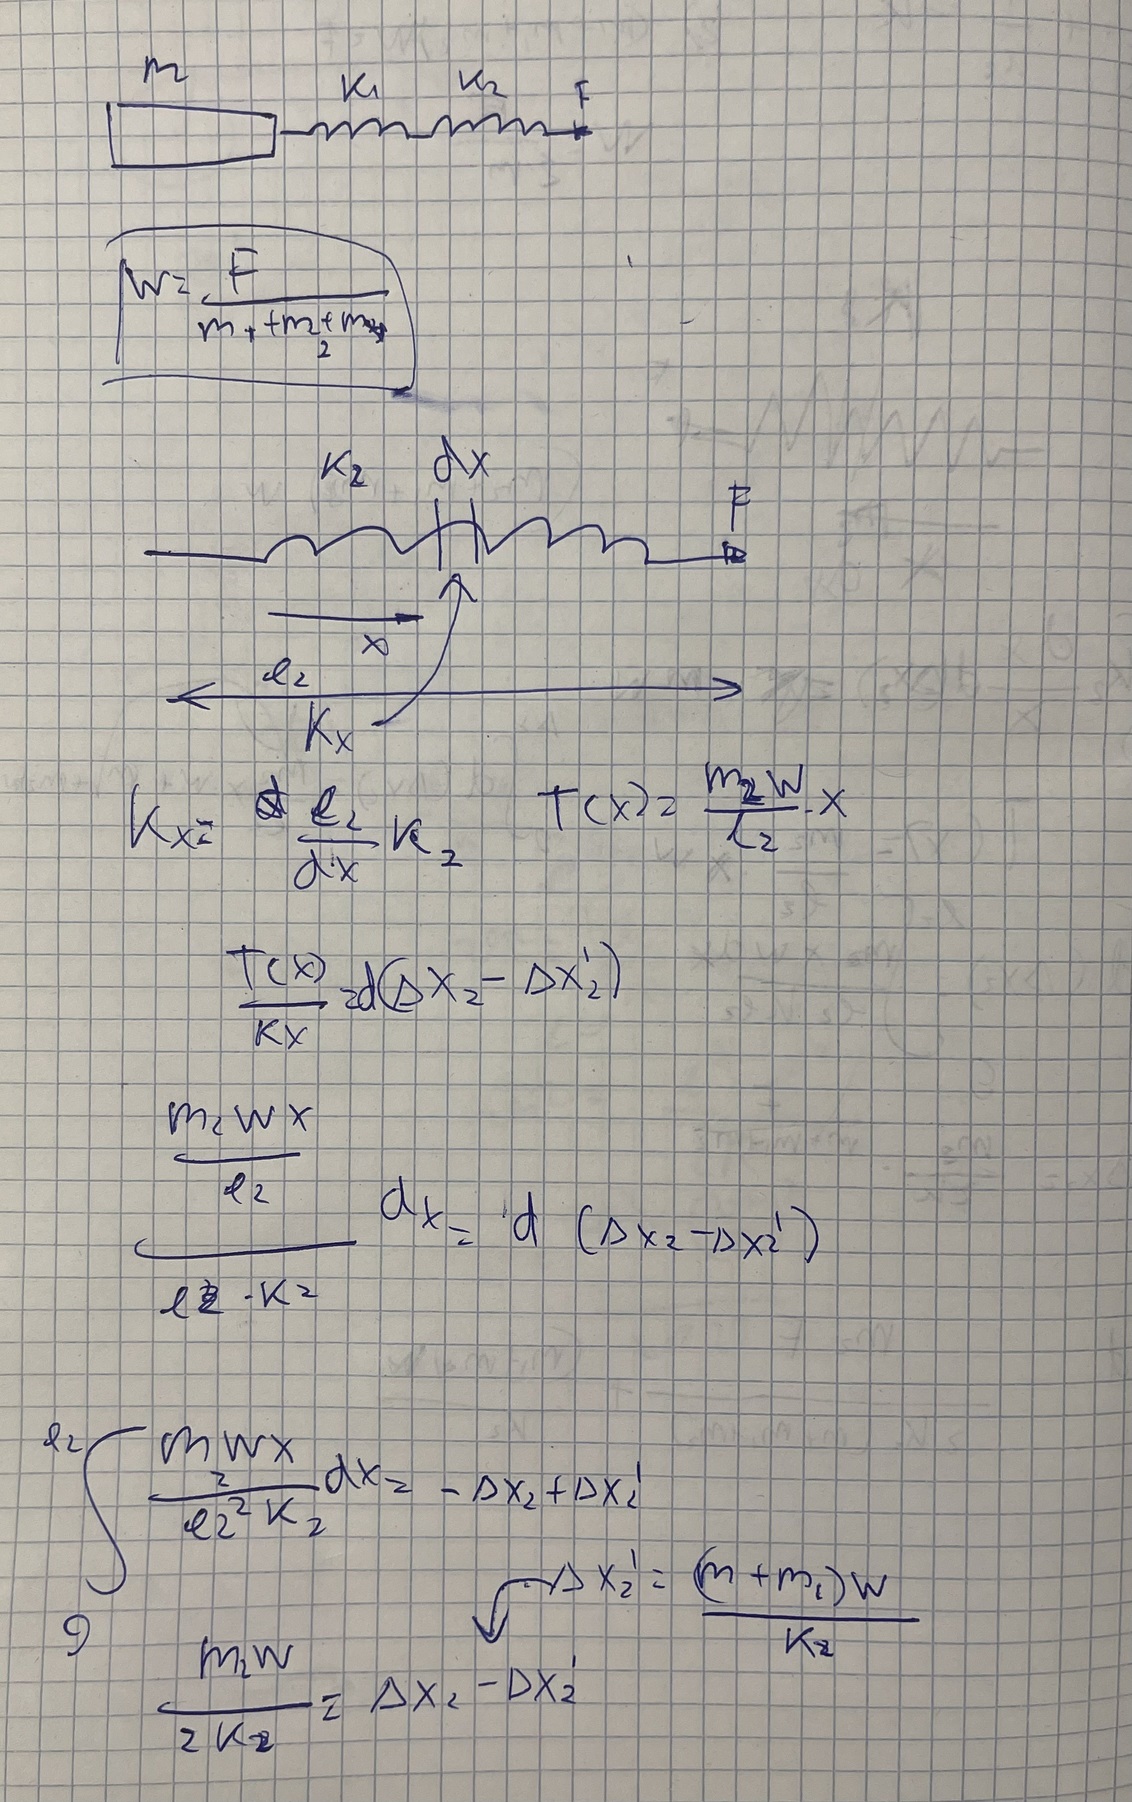 m
K₁ K₂ F
W = F / (m₁ + m₂ + m)
K₂ dx F
x
l₂
Kx
Kx = l₂/dx K₂ T(x) = m₂W/l₂ · x
T(x)/Kx = d(Δx₂ - Δx₂')
(m₂Wx/l₂)/(l₂ · K₂) dx = d (Δx₂ - Δx₂')
∫₀^l₂ m₂Wx/(l₂²K₂) dx = - Δx₂ + Δx₂'
Δx₂' = (m + m₁)W/K₂
m₂W/2K₂ = Δx₂ - Δx₂'